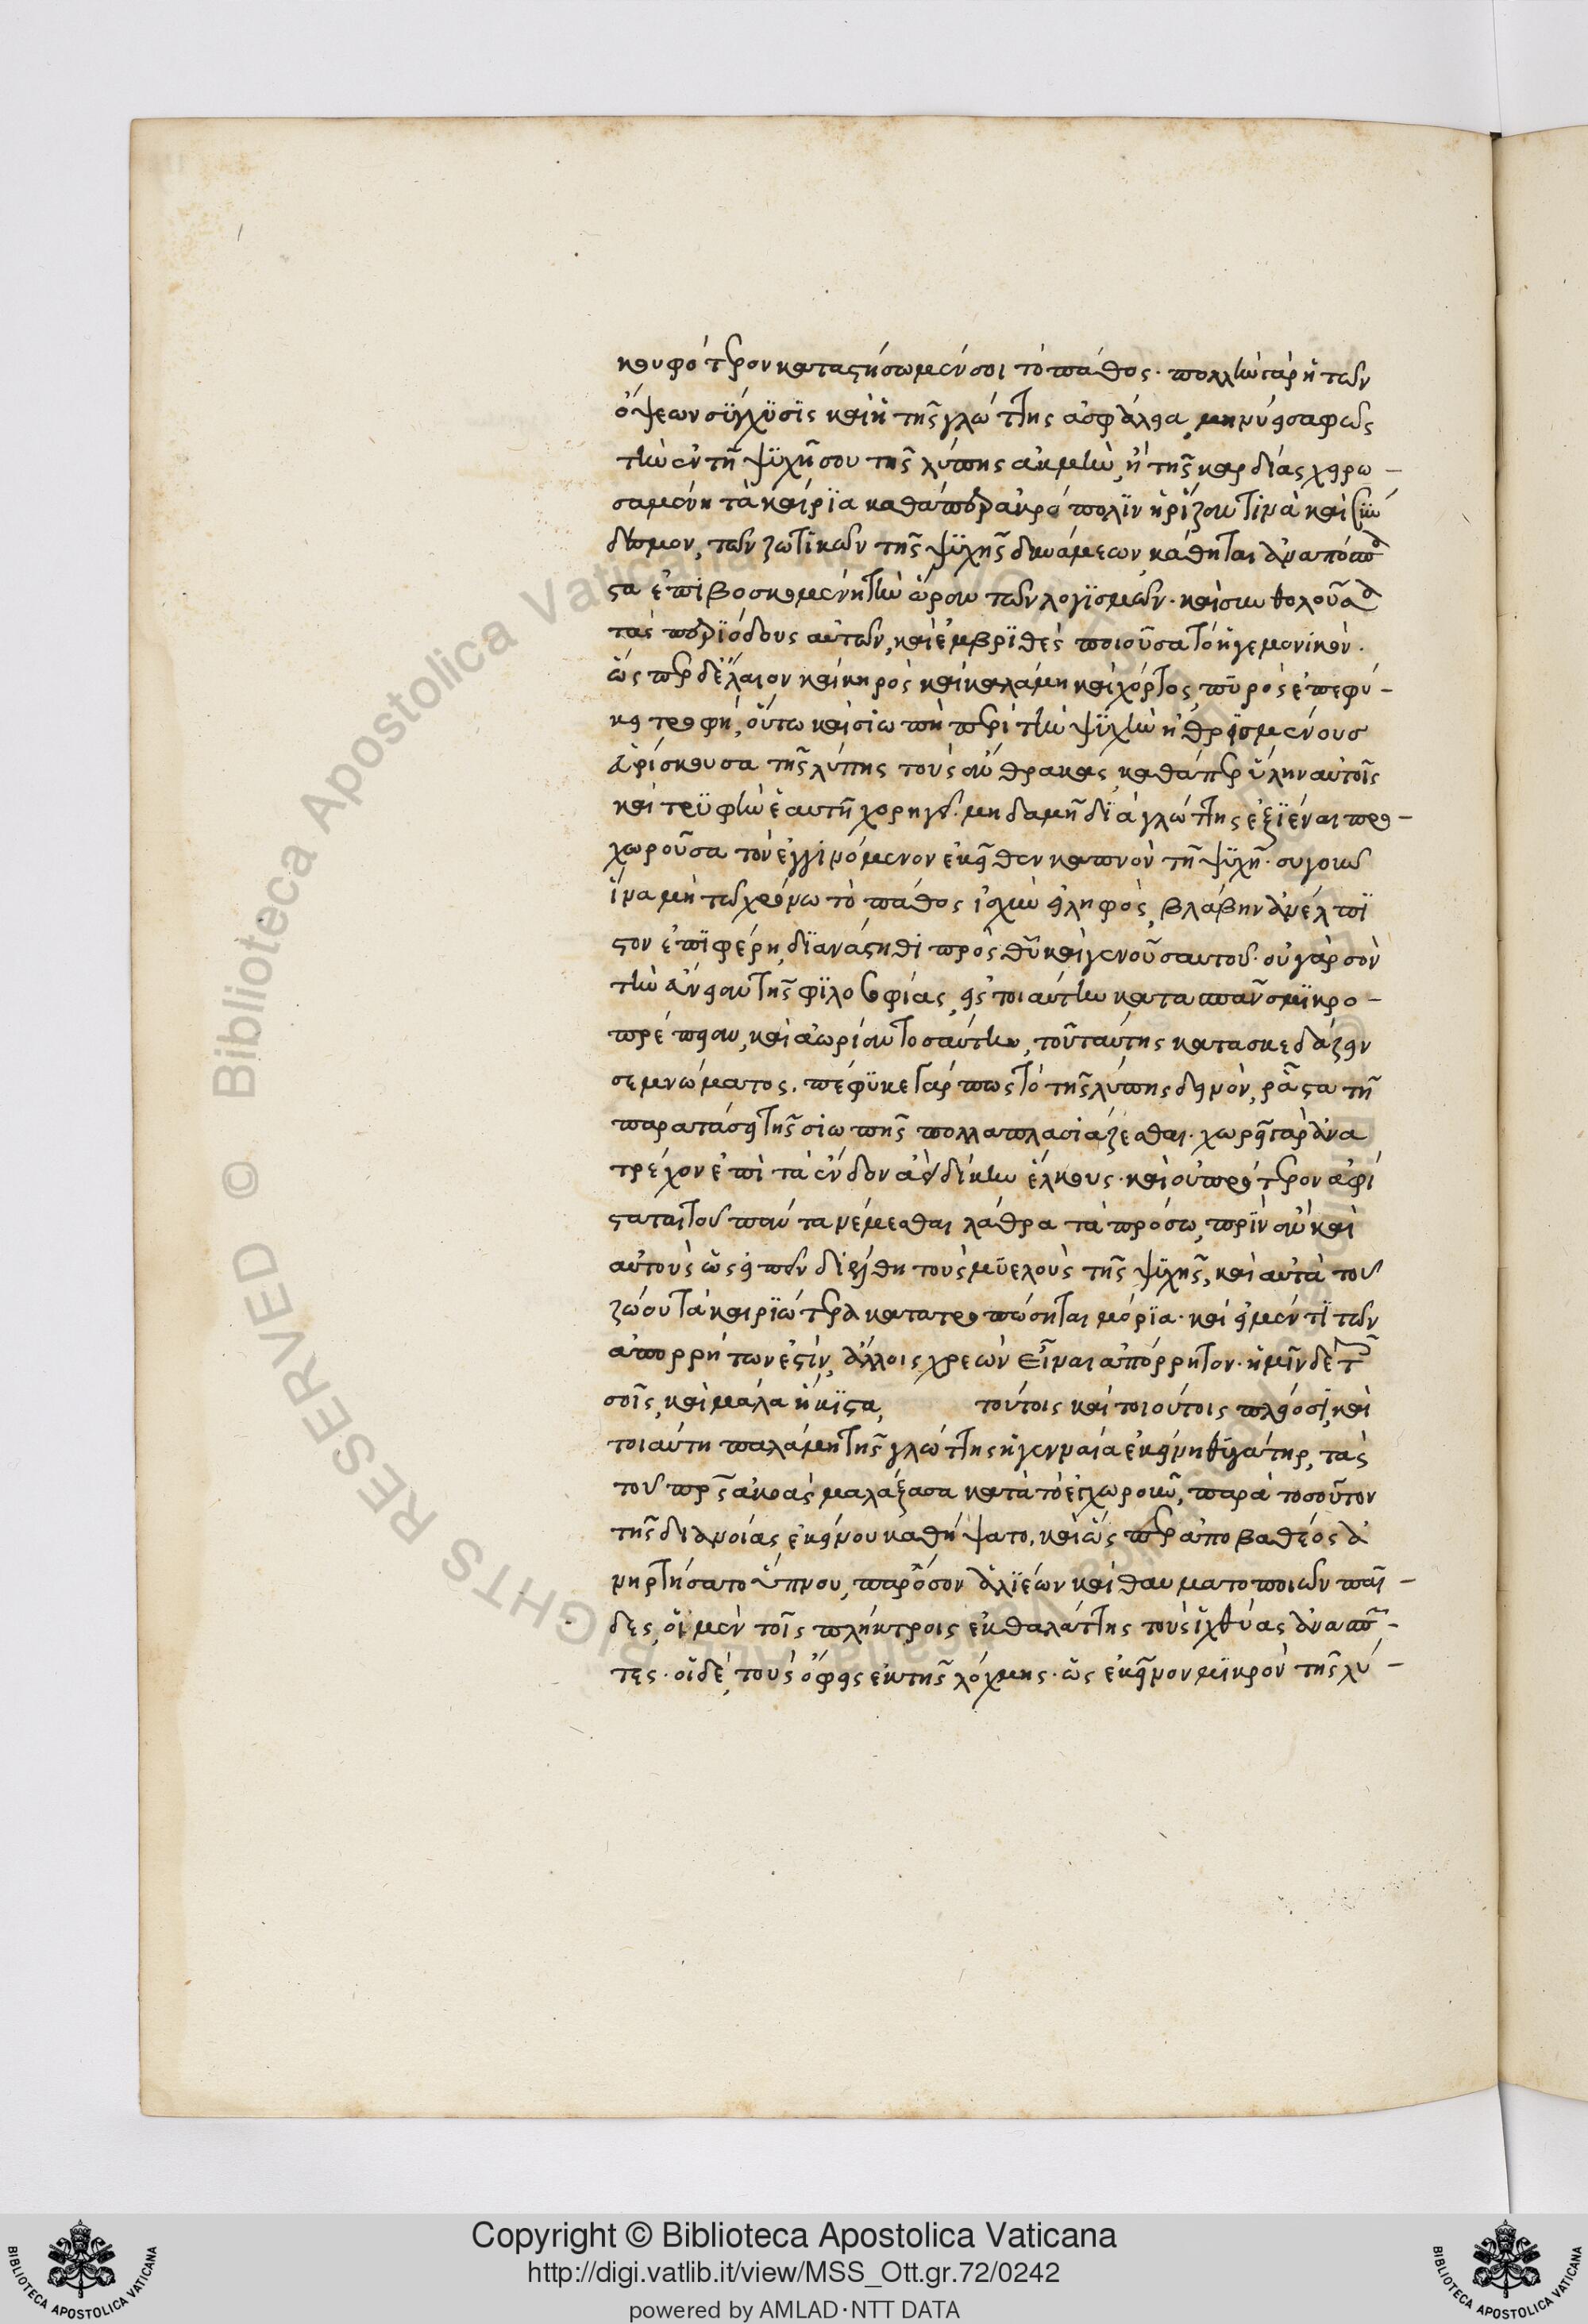 κουφότερον καταστήσωμέν σοι τὸ πάθος. πολλὴ γὰρ ἡ τῶν
ὄψεων σύγχυσις καὶ ἡ τῆς γλώττης ἀσφάλεια, μηνύει σαφῶς
τὴν ἐν τῇ ψυχῇ σου τῆς λύπης ἀκμὴν, ἣ τῆς καρδίας χειρω-
σαμένη τὰ καίρια καθάπερ ἀκρόπολιν καὶ
τῶν ζωτικῶν τῆς ψυχῆς δυνάμεων, κάθηται
ἐπιβοσκομένη τὴν ὥραν τῶν λογισμῶν. καὶ συνθολοῦσα
τὰς περιόδους αὐτῶν, καὶ ἐμβριθὲς ποιοῦσα τὸ ἡγεμονικόν.
ὥσπερ δ' ἔλαιον καὶ κηρὸς καὶ καλάμη καὶ χόρτος, πυρὸς ἐπεφύ-
κει τροφὴ, οὕτω καὶ σιωπὴ περὶ τὴν ψυχὴν ἠθροισμένους
εὑρίσκουσα τῆς λύπης τοὺς ἄνθρακας, καθάπερ ὕλην αὐτοῖς
καὶ τρυφὴν ἑαυτῇ χορηγεῖ. μηδαμῇ διὰ γλώττης ἐξιέναι προ-
χωροῦσα τὸν ἐγγινόμενον ἐκεῖθεν καπνὸν τῇ ψυχῇ.
ἵνα μὴ τῷ χρόνω τὸ πάθος ἰσχὺν εἰληφὸς, βλάβην ἀνέλπι
στον ἐπιφέρη, διανάστηθι πρὸς θεοῦ καὶ γενοῦ σαυτοῦ. οὐ γὰρ σὸν
τὴν τῆς φιλοσοφίας, εἰς τοιαύτην καταπᾶν σμικρο-
πρέπειαν, καὶ ἀωρίαν τοσαύτην, τοῦ ταύτης κατασκεδάζειν
σεμνώματος. πέφυκε γάρ πως τὸ τῆς λύπης δεινὸν, ῥᾷστα τῇ
παρατάσει τῆς σιωπῆς πολλαπλασιάζεσθαι. χωρεῖ γὰρ ἀνα
τρέχον ἐπὶ τὰ ἔνδον δίκην ἕλκους. καὶ οὐ πρότερον ἀφί
σταται τοῦ πάντα νέμεσθαι λάθρα τὰ πρόσω, πρὶν ἂν καὶ
αὐτοὺς ὡς εἰπεῖν διέλθη τοὺς μυελοὺς τῆς ψυχῆς, καὶ αὐτὰ τοῦ
ζώου τὰ καιριώτερα κατατροπώσηται μόρια. καὶ εἰ μέν τι τῶν
ἀπορρήτων ἐστὶν, ἄλλοις χρεὼν εἶναι ἀπόρρητον. ἡμῖν δὲ τοῖς
σοῖς, καὶ μάλα ἥκιστα, τούτοις καὶ τοιούτοις πλείοσι, καὶ
τοιαύτη παλάμη τῆς γλώττης ἡ γενναία ἐκείνη θυγάτηρ, τὰς
τοῦ πατρὸς ἀκοὰς μαλάξασα κατὰ τὸ ἐγχωροῦν, παρὰ τοσοῦτον
τῆς διανοίας ἐκείνου καθήψατο, καὶ ὥσπερ ἀπὸ βαθέος ἀ
νηρτήσατο ὕπνου, παρόσον ἁλιέων καὶ θαυματοποιῶν παῖ-
δες, οἱ μὲν τοῖς πλήκτροις ἐκ θαλάττης τοὺς ἰχθύας ἀνασπῶν-
τες. οἱ δὲ, τοὺς ὄφεις ἐκ τῆς λόχμης. ὡς ἐκεῖνον μικρὸν τῆς λύ-
Copyright © Biblioteca Apostolica Vaticana
http://digi.vatlib.it/view/MSS_Ott.gr.72/0242
powered by AMLAD·NTT DATA
BIBLIOTECA APOSTOLICA VATICANA
BIBLIOTECA APOSTOLICA VATICANA